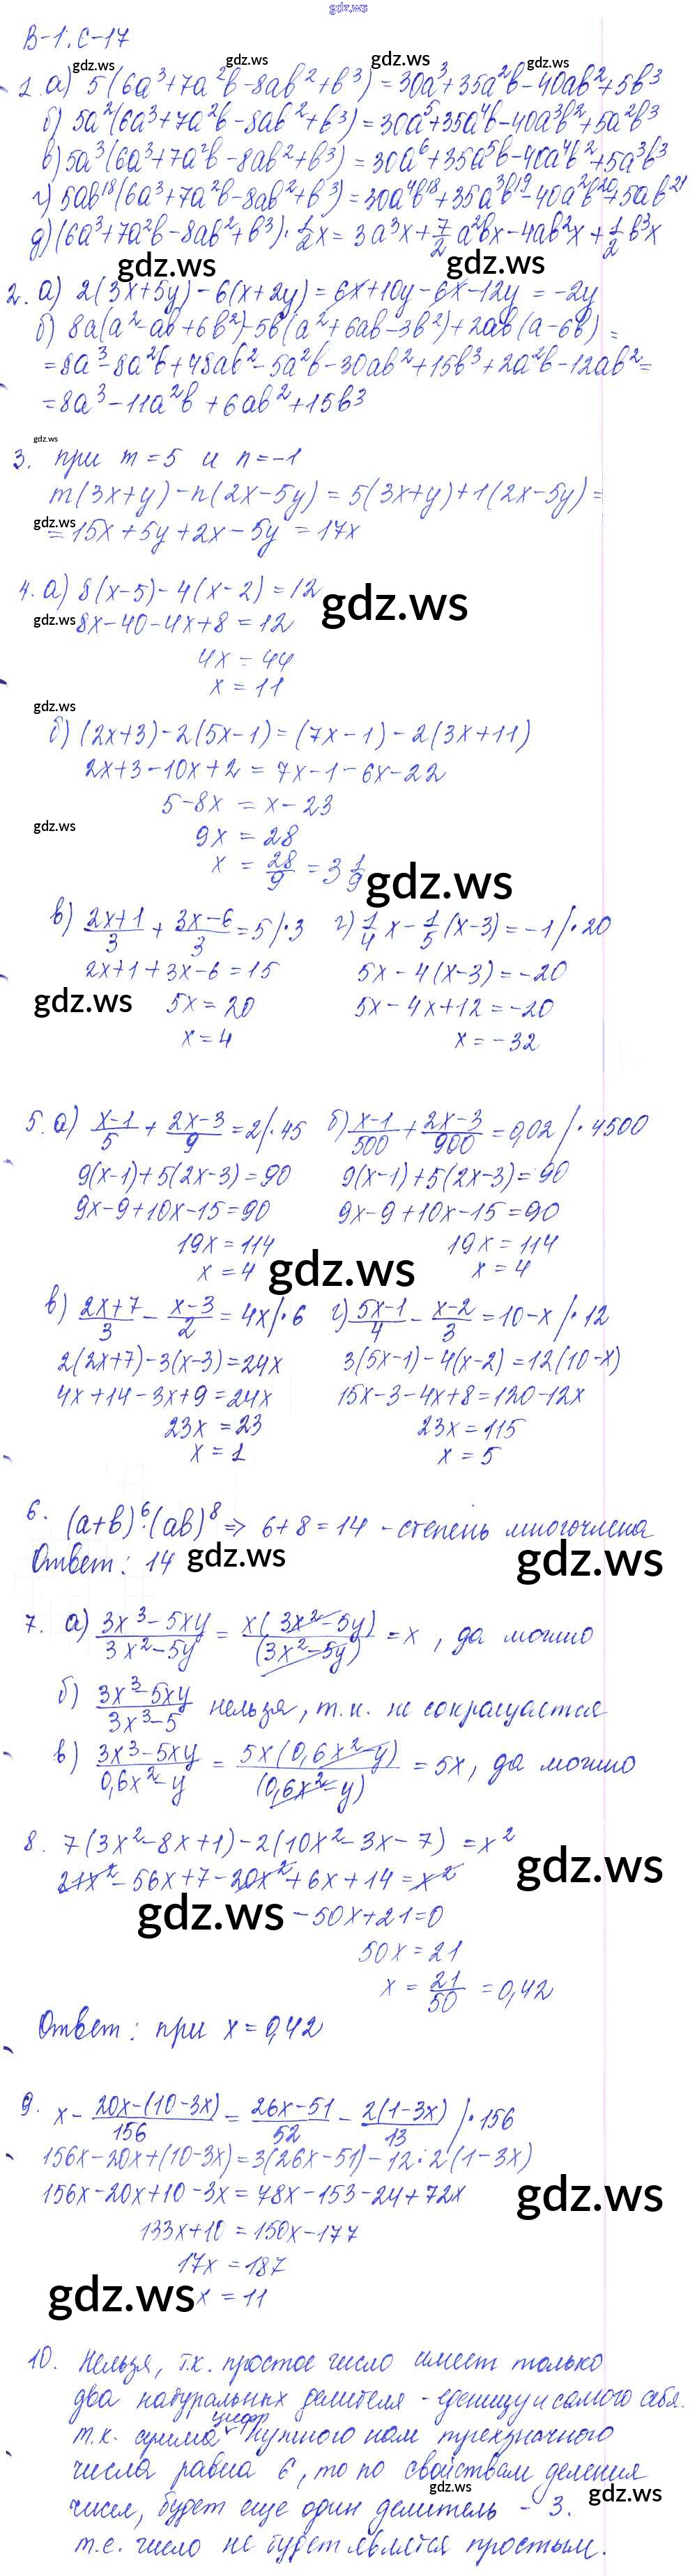 gdz.ws
В-1. С-17
gdz.ws gdz.ws gdz.ws gdz.ws
1. а) 5(6a³+7a²b-8ab²+b³)=30a³+35a²b-40ab²+5b³
б) 5a²(6a³+7a²b-8ab²+b³)=30a⁵+35a⁴b-40a³b²+5a²b³
в) 5a³(6a³+7a²b-8ab²+b³)=30a⁶+35a⁵b-40a⁴b²+5a³b³
г) 5ab¹⁸(6a³+7a²b-8ab²+b³)=30a⁴b¹⁸+35a³b¹⁹-40a²b²⁰+5ab²¹
д) (6a³+7a²b-8ab²+b³)·1/2x=3a³x+7/2a²bx-4ab²x+1/2b³x
gdz.ws gdz.ws
2. а) 2(3x+5y)-6(x+2y)=6x+10y-6x-12y=-2y
б) 8a(a²-ab+6b²)-5b(a²+6ab-3b²)+2ab(a-6b)=
=8a³-8a²b+48ab²-5a²b-30ab²+15b³+2a²b-12ab²=
=8a³-11a²b+6ab²+15b³
gdz.ws
3. при m=5 и n=-1
m(3x+y)-n(2x-5y)=5(3x+y)+1(2x-5y)=
gdz.ws
=15x+5y+2x-5y=17x
4. а) 8(x-5)-4(x-2)=12
gdz.ws
gdz.ws
8x-40-4x+8=12
4x=44
x=11
gdz.ws
б) (2x+3)-2(5x-1)=(7x-1)-2(3x+11)
2x+3-10x+2=7x-1-6x-22
5-8x=x-23
gdz.ws
9x=28
x=28/9=3 1/9
gdz.ws
в) (2x+1)/3+(3x-6)/3=5 /·3 г) 1/4x-1/5(x-3)=-1 /·20
2x+1+3x-6=15 5x-4(x-3)=-20
gdz.ws
5x=20 5x-4x+12=-20
x=4 x=-32
5. а) (x-1)/5+(2x-3)/9=2 /·45 б) (x-1)/500+(2x-3)/900=0,02 /·4500
9(x-1)+5(2x-3)=90 9(x-1)+5(2x-3)=90
9x-9+10x-15=90 9x-9+10x-15=90
19x=114 19x=114
x=4 gdz.ws x=4
в) (2x+7)/3-(x-3)/2=4x /·6 г) (5x-1)/4-(x-2)/3=10-x /·12
2(2x+7)-3(x-3)=24x 3(5x-1)-4(x-2)=12(10-x)
4x+14-3x+9=24x 15x-3-4x+8=120-12x
23x=23 23x=115
x=1 x=5
6. (a+b)⁶·(ab)⁸ => 6+8=14 - степень многочлена
Ответ: 14 gdz.ws gdz.ws
7. а) (3x³-5xy)/(3x²-5y)=x(3x²-5y)/(3x²-5y)=x, да можно
б) (3x³-5xy)/(3x³-5) нельзя, т.к. не сокращается
в) (3x³-5xy)/(0,6x²-y)=5x(0,6x²-y)/(0,6x²-y)=5x, да можно
8. 7(3x²-8x+1)-2(10x²-3x-7)=x²
gdz.ws
21x²-56x+7-20x²+6x+14=x²
gdz.ws
-50x+21=0
50x=21
x=21/50=0,42
Ответ: при x=0,42
9. x-(20x-(10-3x))/156=(26x-51)/52-2(1-3x)/13 /·156
156x-20x+(10-3x)=3(26x-51)-12·2(1-3x)
156x-20x+10-3x=78x-153-24+72x
gdz.ws
133x+10=150x-177
17x=187
gdz.ws
x=11
10. Нельзя, т.к. простое число имеет только
два натуральных делителя - еденицу и самого себя.
т.к. сумма цифр нужного нам трехзначного
числа равна 6, то по свойствам деления
gdz.ws gdz.ws
чисел, будет еще один делитель - 3.
т.е. число не будет являтся простым.